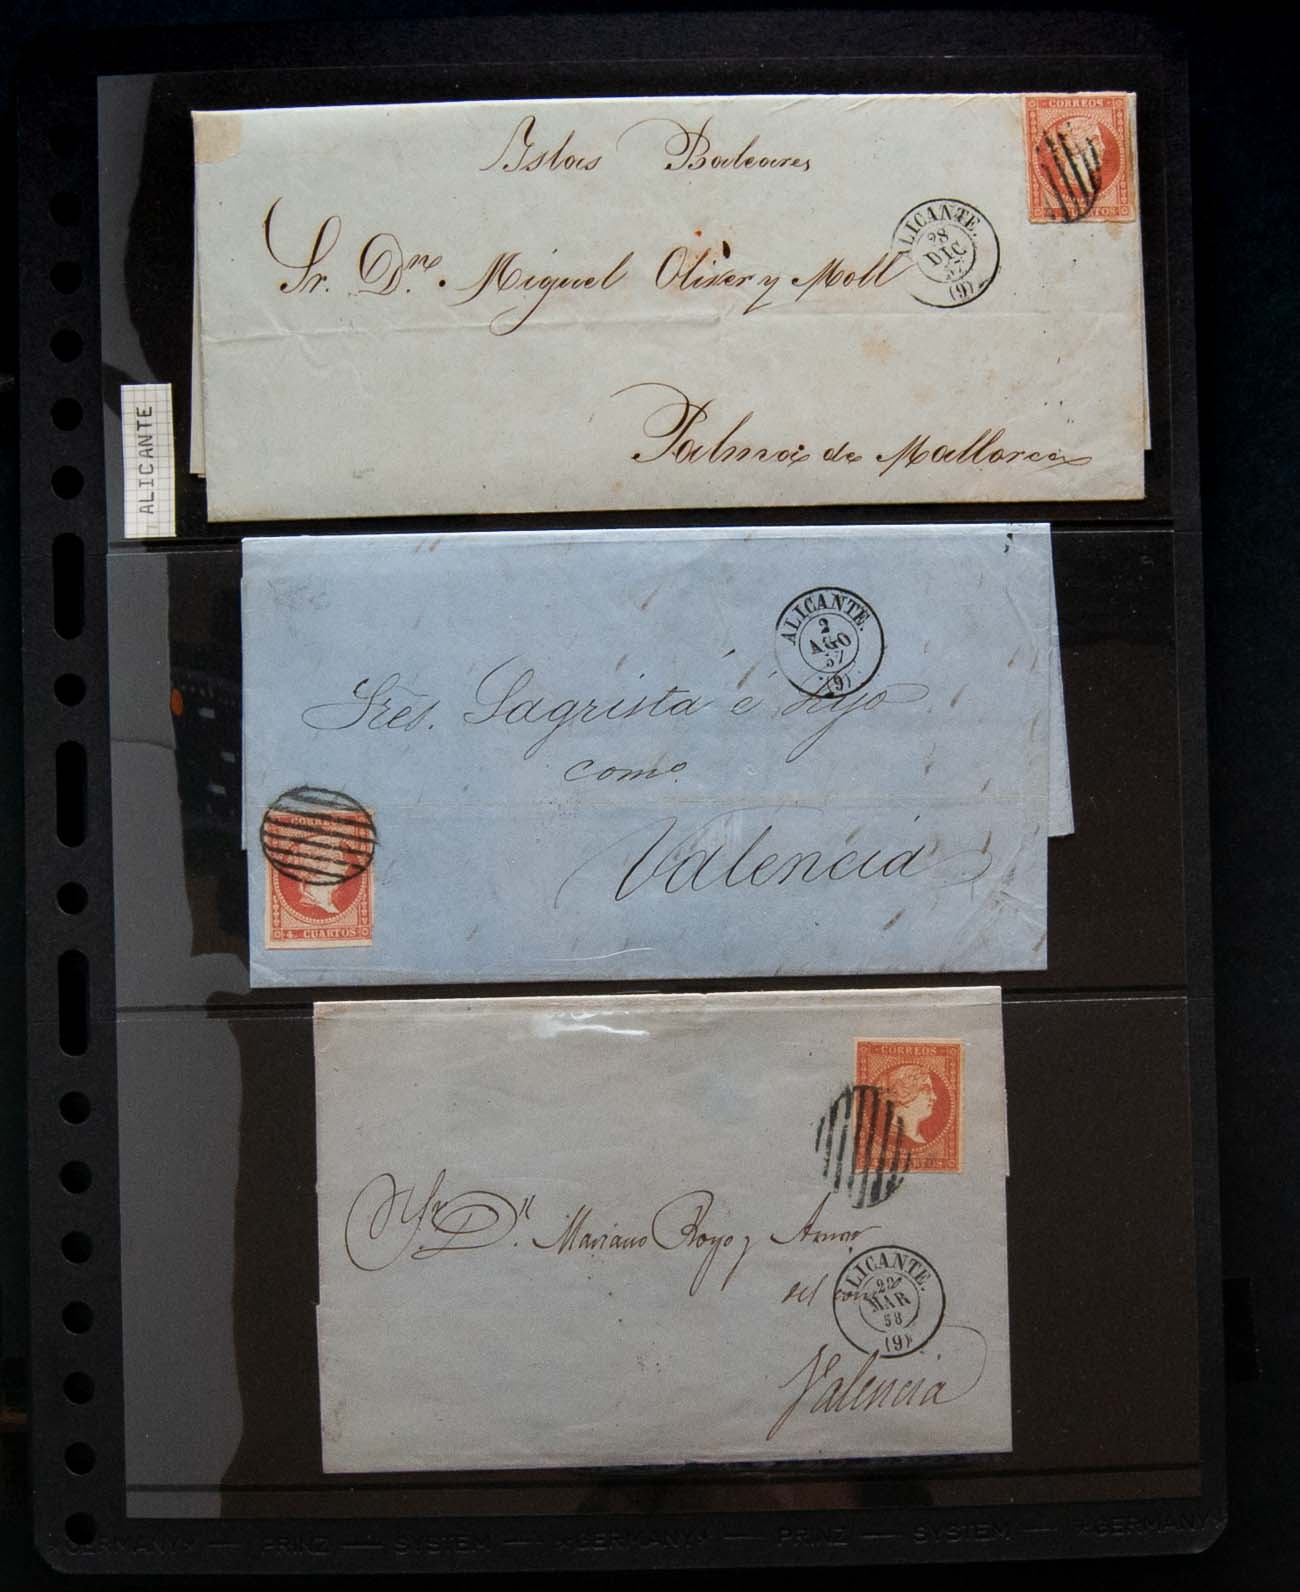 CORREOS
Islas Baleares
ALICANTE.
28
DIC
57
(9)
Sr. Dn. Miguel Oliver y Moll
Palma de Mallorca
ALICANTE
ALICANTE.
2
AGO
57
(9)
Sres. Sagrista é hijo
como
Valencia
4 CUARTOS
CORREOS
Sr. Dn. Mariano Royo y
del
ALICANTE.
22
MAR
58
(9)
Valencia
GERMANY* — PRINZ — SYSTEM — *GERMANY* — PRINZ — SYSTEM — *GERMANY*